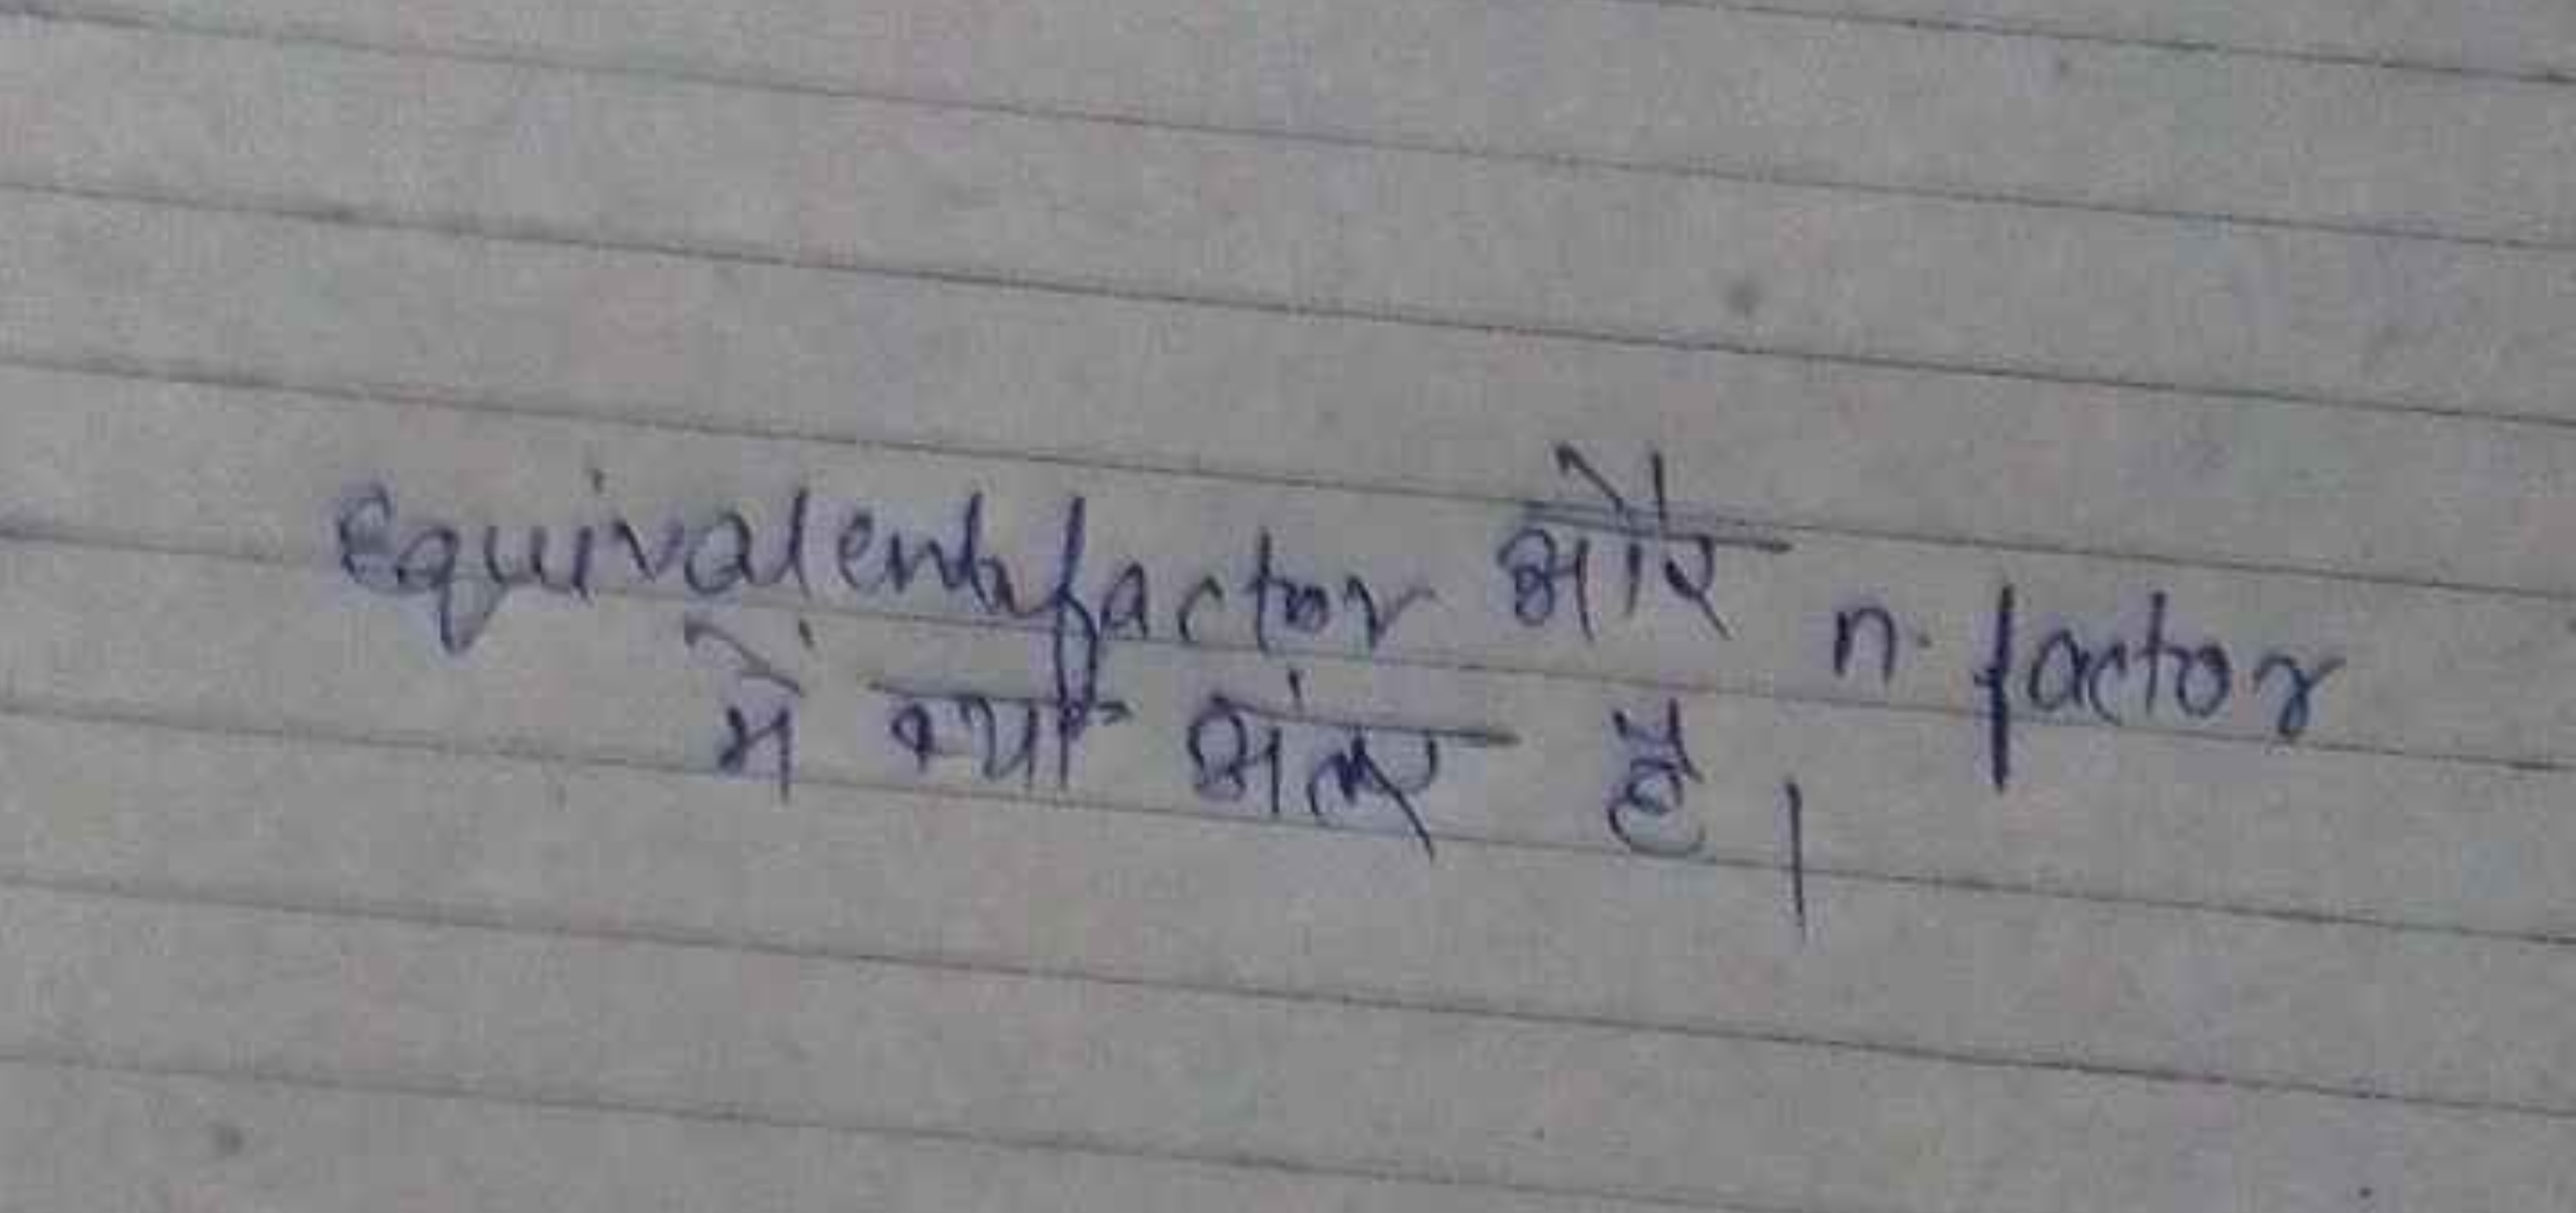 equivalent factor और n. factor
में क्या अंतर है।